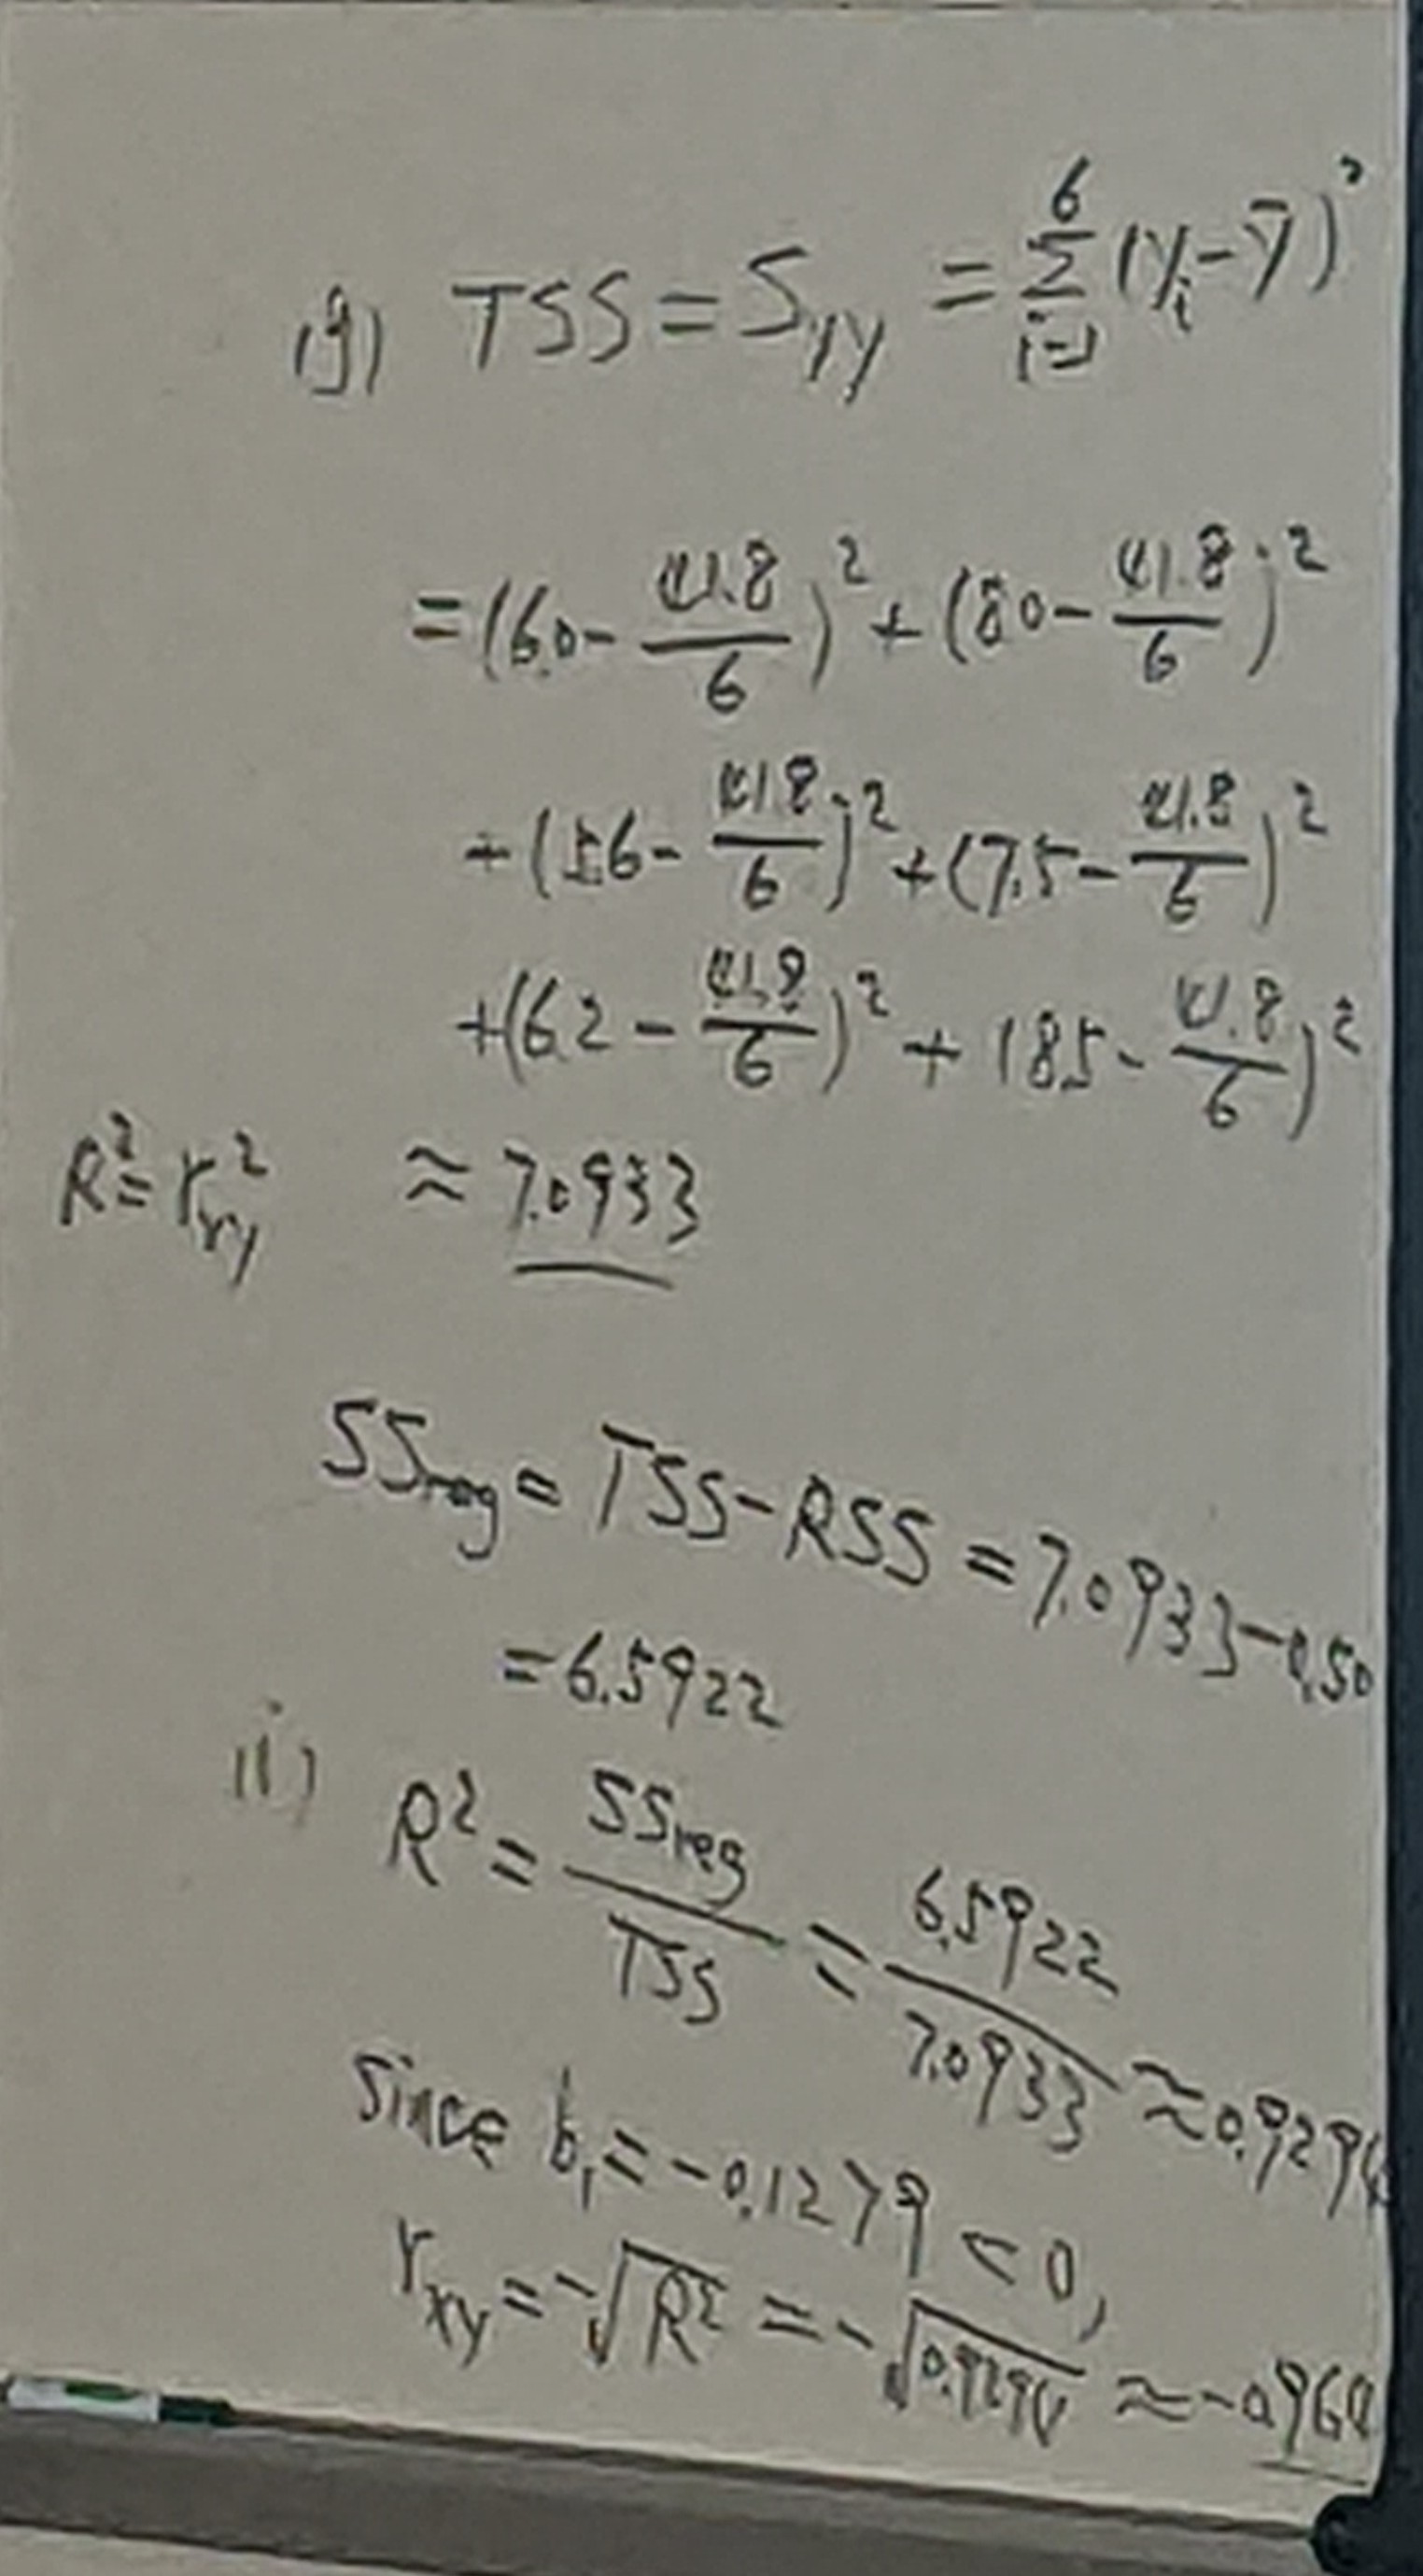 (g) TSS = S_yy = Σ_{i=1}^{6} (y_i - ȳ)²
= (6.0 - 41.8/6)² + (8.0 - 41.8/6)²
+ (5.6 - 41.8/6)² + (7.5 - 41.8/6)²
+ (6.2 - 41.8/6)² + (8.5 - 41.8/6)²
R² = r_xy² ≈ 7.0933
SS_reg = TSS - RSS = 7.0933 - 0.50
= 6.5922
ii) R² = SS_reg/TSS = 6.5922/7.0933 ≈ 0.9294
Since b₁ = -0.1279 < 0,
r_xy = -√R² = -√0.9294 ≈ -0.964